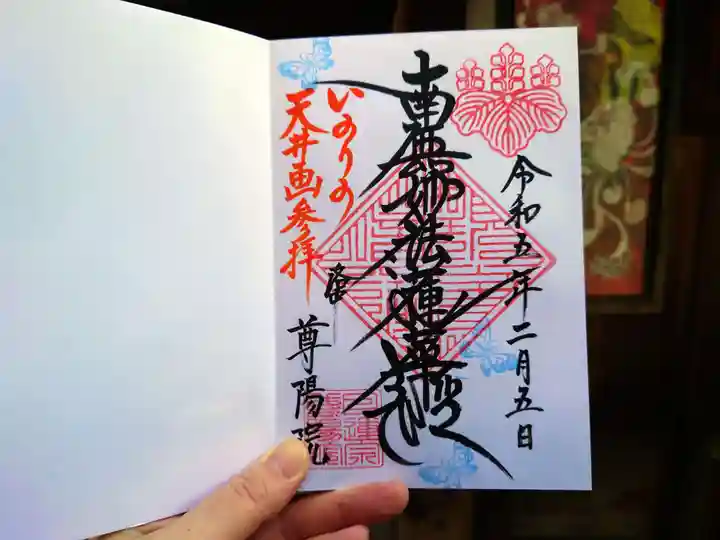 令和五年二月五日
南無妙法蓮華経
いのりの
天井画参拝
尊陽院